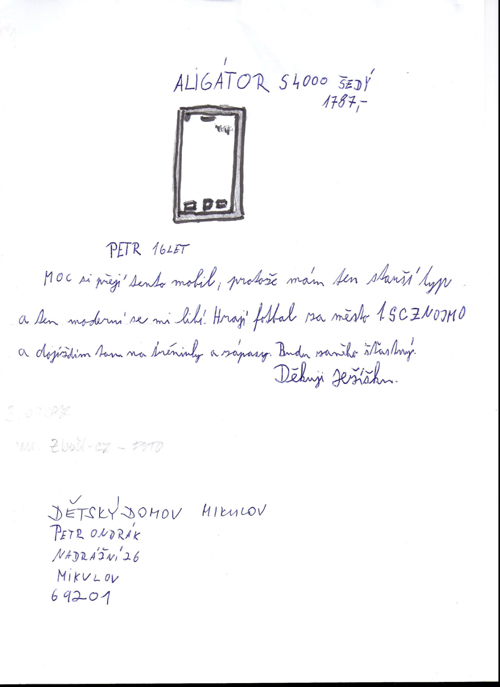 ALIGÁTOR S4000 ŠEDÝ
1787,-
PETR 16LET
MOC si přeji tento mobil, protože mám ten starší typ
a ten moderní se mi líbí. Hraji fotbal za město 1SCZNOJMO
a dojíždím tam na tréninky a zápasy. Budu za něho šťastný.
Děkuji Ježíšku.
Zboží-cz - FOTO
DĚTSKÝ DOMOV MIKULOV
PETR ONDRÁK
NADRÁŽNÍ 26
MIKULOV
69201